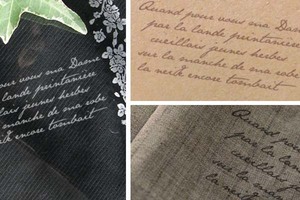 pour vous ma Dame
la lande printanière
jeunes herbes
la manche de ma robe
encore tombait
Quand pour vous ma Dame
par la lande printanière
cueillais jeunes herbes
sur la manche de ma robe
la neige encore tombait
Quand pour
par la lande
cueillais
sur la man
la neige